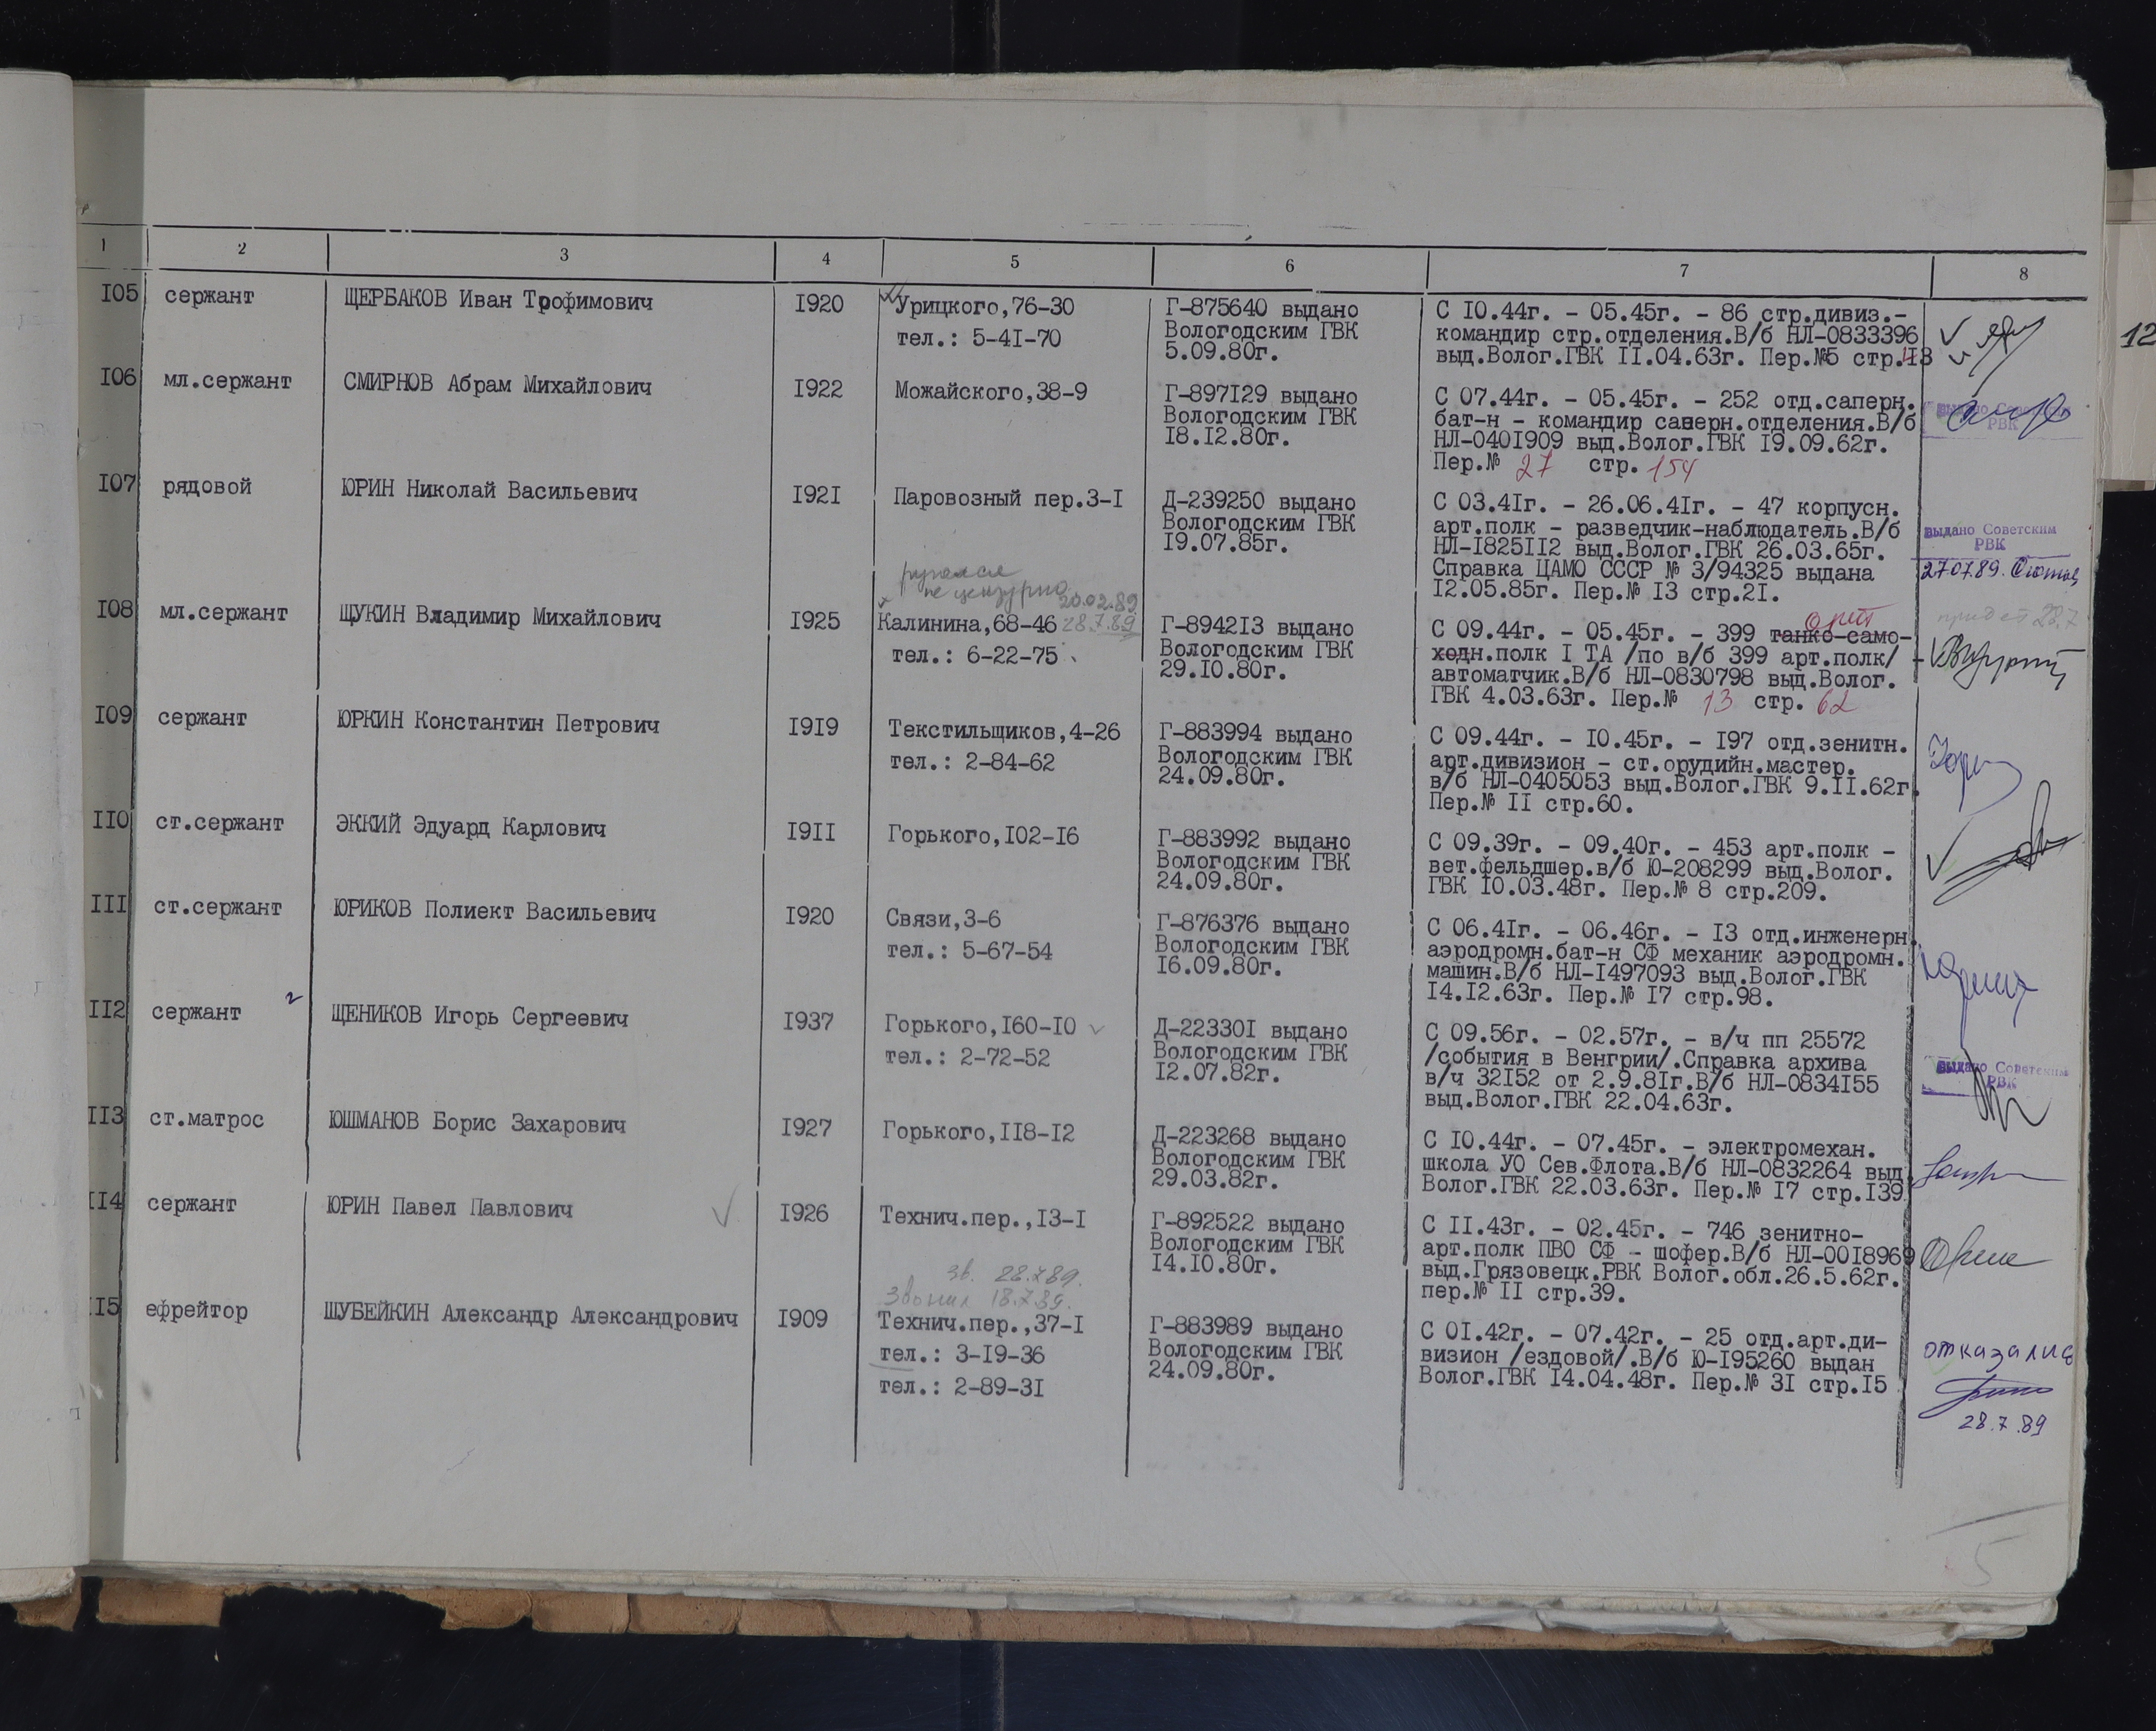 1 2 3 4 5 6 7 8
I05 сержант ЩЕРБАКОВ Иван Трофимович I920 Урицкого,76-30 Г-875640 выдано С I0.44г. - 05.45г. - 86 стр.дивиз.-
тел.: 5-4I-70 Вологодским ГВК командир стр.отделения.В/б НЛ-0833396
5.09.80г. выд.Волог.ГВК II.04.63г. Пер.№5 стр.43
12
I06 мл.сержант СМИРНОВ Абрам Михайлович I922 Можайского,38-9 Г-897I29 выдано С 07.44г. - 05.45г. - 252 отд.саперн.
Вологодским ГВК бат-н - командир саперн.отделения.В/б выдано Советским
I8.I2.80г. НЛ-040I909 выд.Волог.ГВК I9.09.62г. РВК
Пер.№ 27 стр. 154
I07 рядовой ЮРИН Николай Васильевич I92I Паровозный пер.3-I Д-239250 выдано С 03.4Iг. - 26.06.4Iг. - 47 корпусн.
Вологодским ГВК арт.полк - разведчик-наблюдатель.В/б выдано Советским
I9.07.85г. НЛ-I825II2 выд.Волог.ГВК 26.03.65г. РВК
Справка ЦАМО СССР № 3/94325 выдана 27.07.89.
I2.05.85г. Пер.№ I3 стр.2I.
ругался
не цензурно
20.02.89
I08 мл.сержант ЩУКИН Владимир Михайлович I925 Калинина,68-46 28.7.89 Г-8942I3 выдано С 09.44г. - 05.45г. - 399 танко-само- придет 28.7
тел.: 6-22-75 Вологодским ГВК ходн.полк I ТА /по в/б 399 арт.полк/ -
29.I0.80г. автоматчик.В/б НЛ-0830798 выд.Волог.
ГВК 4.03.63г. Пер.№ 13 стр. 62
I09 сержант ЮРКИН Константин Петрович I9I9 Текстильщиков,4-26 Г-883994 выдано С 09.44г. - I0.45г. - I97 отд.зенитн.
тел.: 2-84-62 Вологодским ГВК арт.дивизион - ст.орудийн.мастер.
24.09.80г. в/б НЛ-0405053 выд.Волог.ГВК 9.II.62г.
Пер.№ II стр.60.
II0 ст.сержант ЭККИЙ Эдуард Карлович I9II Горького,I02-I6 Г-883992 выдано С 09.39г. - 09.40г. - 453 арт.полк -
Вологодским ГВК вет.фельдшер.в/б Ю-208299 выд.Волог.
24.09.80г. ГВК I0.03.48г. Пер.№ 8 стр.209.
III ст.сержант ЮРИКОВ Полиект Васильевич I920 Связи,3-6 Г-876376 выдано С 06.4Iг. - 06.46г. - I3 отд.инженерн.
тел.: 5-67-54 Вологодским ГВК аэродромн.бат-н СФ механик аэродромн.
I6.09.80г. машин.В/б НЛ-I497093 выд.Волог.ГВК
I4.I2.63г. Пер.№ I7 стр.98.
II2 сержант ЩЕНИКОВ Игорь Сергеевич I937 Горького,I60-I0 Д-22330I выдано С 09.56г. - 02.57г. - в/ч пп 25572
тел.: 2-72-52 Вологодским ГВК /события в Венгрии/.Справка архива выдано Советским
I2.07.82г. в/ч 32I52 от 2.9.8Iг.В/б НЛ-0834I55 РВК
выд.Волог.ГВК 22.04.63г.
II3 ст.матрос ЮШМАНОВ Борис Захарович I927 Горького,II8-I2 Д-223268 выдано С I0.44г. - 07.45г. - электромехан.
Вологодским ГВК школа УО Сев.Флота.В/б НЛ-0832264 выд.
29.03.82г. Волог.ГВК 22.03.63г. Пер.№ I7 стр.I39
II4 сержант ЮРИН Павел Павлович I926 Технич.пер.,I3-I Г-892522 выдано С II.43г. - 02.45г. - 746 зенитно-
Вологодским ГВК арт.полк ПВО СФ - шофер.В/б НЛ-00I8969
I4.I0.80г. выд.Грязовецк.РВК Волог.обл.26.5.62г.
пер.№ II стр.39.
зв. 28.7.89.
звонил 18.7.89.
II5 ефрейтор ШУБЕЙКИН Александр Александрович I909 Технич.пер.,37-I Г-883989 выдано С 0I.42г. - 07.42г. - 25 отд.арт.ди-
тел.: 3-I9-36 Вологодским ГВК визион /ездовой/.В/б Ю-I95260 выдан отказался
тел.: 2-89-3I 24.09.80г. Волог.ГВК I4.04.48г. Пер.№ 3I стр.I5
28.7.89
5